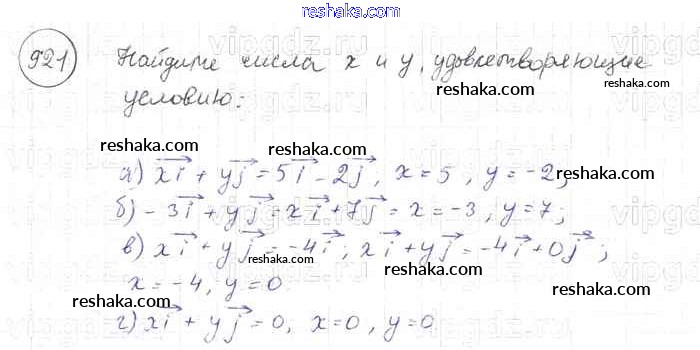 reshaka.com
921
Найдите числа x и y, удовлетворяющие
reshaka.com
условию:
reshaka.com reshaka.com reshaka.com
а) xi⃗ + yj⃗ = 5i⃗ - 2j⃗, x = 5, y = -2;
reshaka.com
б) -3i⃗ + yj⃗ = xi⃗ + 7j⃗ = x = -3, y = 7;
в) xi⃗ + yj⃗ = -4i⃗; xi⃗ + yj⃗ = -4i⃗ + 0j⃗;
reshaka.com reshaka.com
x = -4, y = 0
reshaka.com reshaka.com
г) xi⃗ + yj⃗ = 0, x = 0, y = 0
reshaka.com